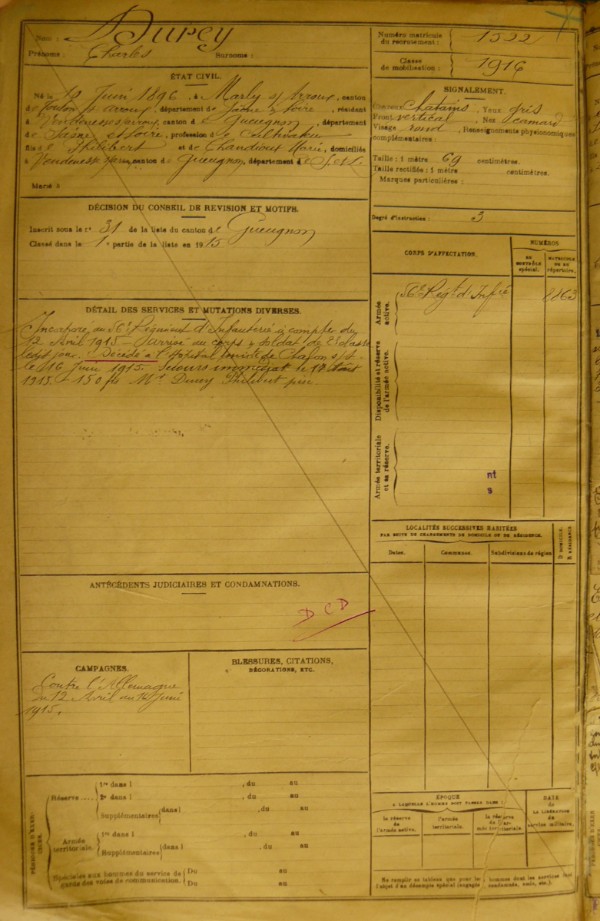 Nom : Durey
Prénoms : Charles Surnoms :
Numéro matricule
du recrutement : 1522
Classe
de mobilisation : 1916
ÉTAT CIVIL.
Né le Juin 1896, à Marly s/ Arroux, canton
de Toulon s/ arroux, département de Saône & Loire, résidant
à Vendenesse s/ arroux, canton de Gueugnon, département
de Saône et Loire, profession de Cultivateur
fils de Philibert et de Chandioux Marie, domiciliés
à Vendenesse, canton de Gueugnon, département de S.et L.
Marié à
SIGNALEMENT.
Cheveux châtains, Yeux gris
Front vertical, Nez camard
Visage rond, Renseignements physionomiques
complémentaires :
Taille : 1 mètre 69 centimètres.
Taille rectifiée : 1 mètre centimètres.
Marques particulières :
Degré d'instruction : 3
DÉCISION DU CONSEIL DE REVISION ET MOTIFS.
Inscrit sous le n° 31 de la liste du canton de Gueugnon
Classé dans la 1e partie de la liste en 1915
CORPS D'AFFECTATION.
NUMÉROS
AU CONTRÔLE spécial.
MATRICULE OU DU répertoire.
Armée active.
56e Régt d'Infie
8863
Disponibilité et réserve de l'armée active.
Armée territoriale et sa réserve.
nt
s
DÉTAIL DES SERVICES ET MUTATIONS DIVERSES.
Incorporé au 56e Régiment d'Infanterie à compter du
12 Avril 1915 - Arrivé au corps & soldat de 2e classe
ledit jour. Décédé à l'hôpital mixte de Chalon s/ S.
le 16 Juin 1915. Secours immédiat le Août
1915 - 150 fs Mr Durey Philibert père.
LOCALITÉS SUCCESSIVES HABITÉES
PAR SUITE DE CHANGEMENTS DE DOMICILE OU DE RÉSIDENCE.
Dates.
Communes.
Subdivisions de région
D. DOMICILE. R. RÉSIDENCE.
ANTÉCÉDENTS JUDICIAIRES ET CONDAMNATIONS.
DCD
CAMPAGNES.
Contre l'Allemagne
du 12 Avril au Juin
1915.
BLESSURES, CITATIONS,
DÉCORATIONS, ETC.
PÉRIODES D'EXERCICES.
Réserve
1re dans l , du au
2e dans l , du au
Supplémentaires dans l , du au
Armée territoriale.
1re dans l , du au
Supplémentaires dans l , du au
Spéciales aux hommes du service de garde des voies de communication.
Du au
Du au
ÉPOQUE
À LAQUELLE L'HOMME DOIT PASSER DANS :
la réserve de l'armée active.
l'armée territoriale.
la réserve de l'armée territoriale
DATE
DE LA LIBÉRATION
du service militaire.
Ne remplir ce tableau que pour les hommes dont les services font
l'objet d'un décompte spécial (engagés, condamnés, omis, etc.)